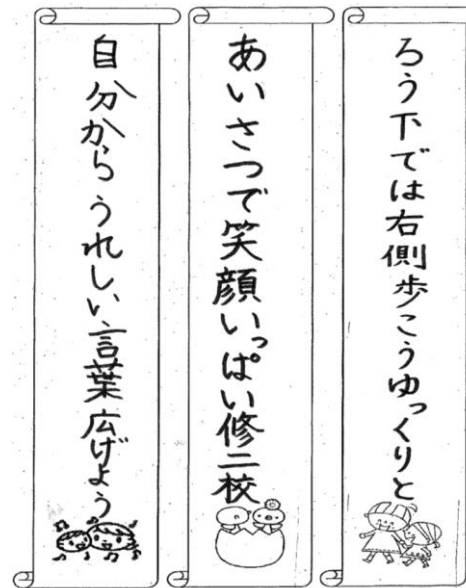 ろう下では右側歩こうゆっくりと
あいさつで笑顔いっぱい修二校
自分からうれしい言葉広げよう